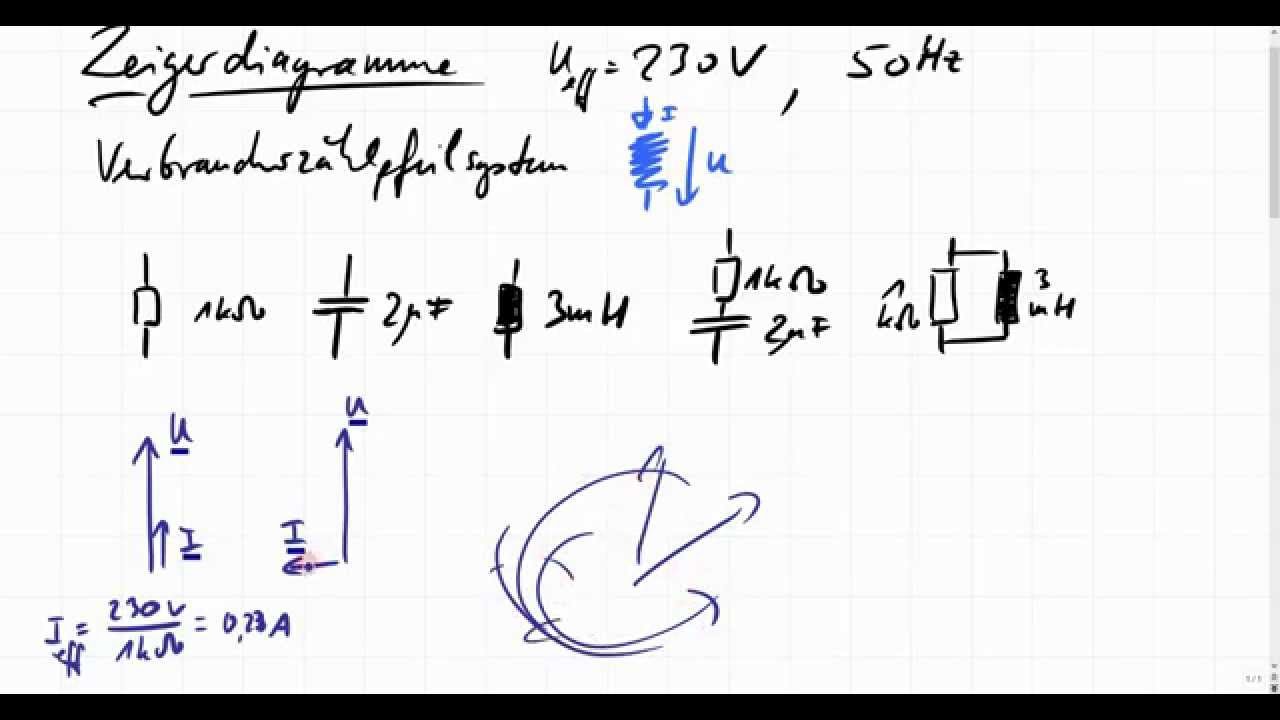 Zeigerdiagramme U_eff = 230V, 50Hz
Verbraucherzählpfeilsystem I U
1kΩ 2µF 3mH 1kΩ 2µF 1kΩ 3mH
U U
I I
I_eff = 230V / 1kΩ = 0,23A
1/1